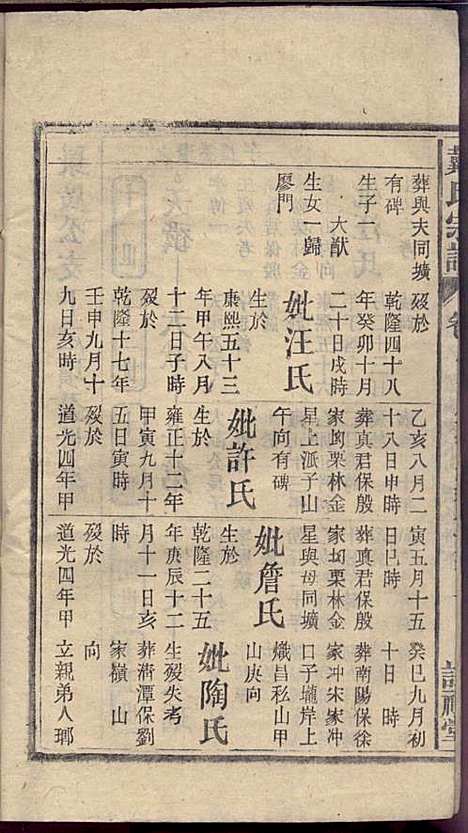 氏宗譜 卷
葬與夫同壙
有碑
生子一
大猷
生女一歸
廖門
歿於
乾隆四十八
年癸卯十月
二十日戌時
妣汪氏
生於
康熙五十三
年甲午八月
十二日子時
歿於
乾隆十七年
壬申九月十
九日亥時
乙亥八月二
十八日申時
葬真君保殷
家坳栗林金
星上派子山
午向有碑
妣許氏
生於
雍正十二年
甲寅九月十
五日寅時
歿於
道光四年甲
寅五月十五
日巳時
葬真君保殷
家坳栗林金
星與母同壙
妣詹氏
生於
乾隆二十五
年庚辰十二
月十一日亥
時
歿於
道光四年甲
癸巳九月初
十日 時
葬南陽保徐
家冲宋家冲
口子壠岸上
熾昌私山甲
山庚向
妣陶氏
生歿失考
潭保劉
家嶺 山
向
立親弟人瑯
禮堂